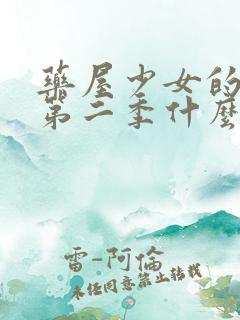 藥屋少女的
第二季什麼
雷-阿倫
未經同意禁止轉載